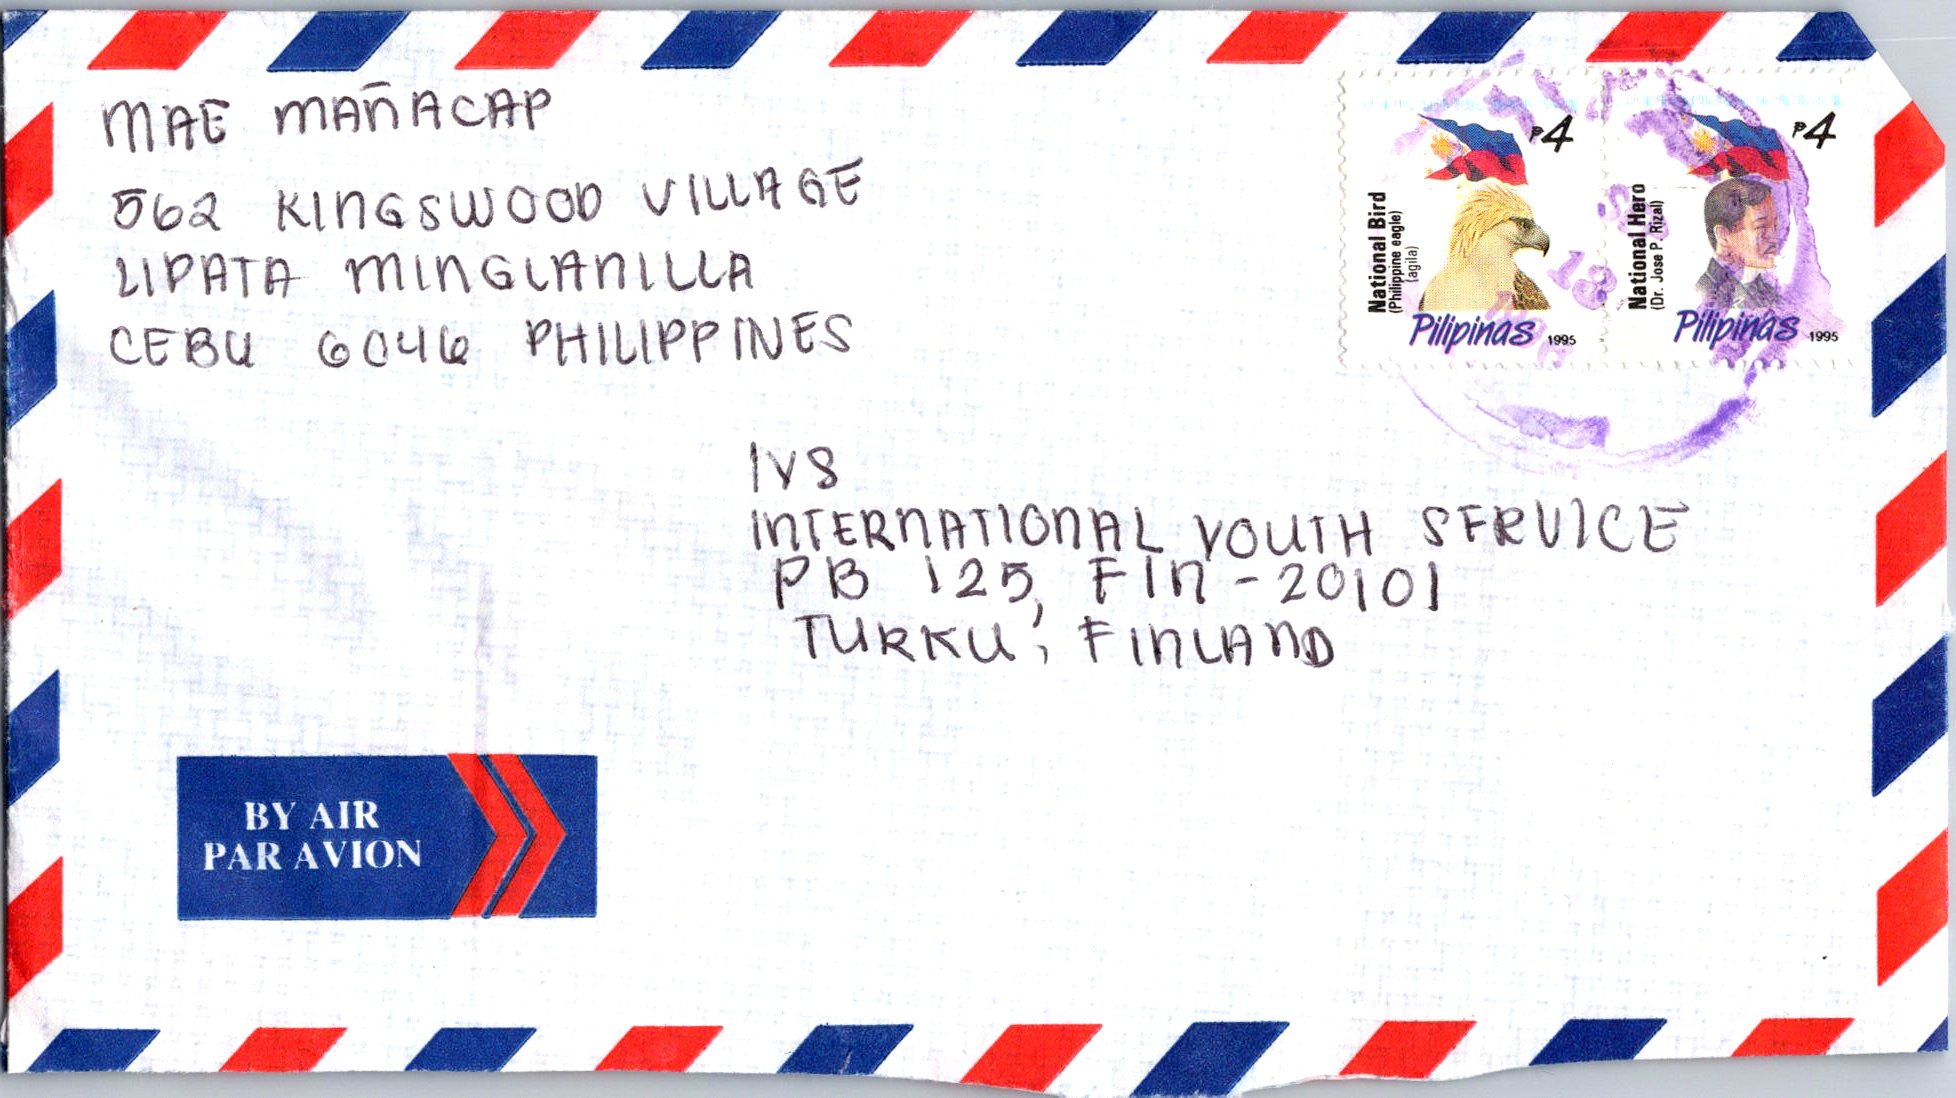 MAE MAÑACAP
562 KINGSWOOD VILLAGE
LIPATA MINGLANILLA
CEBU 6046 PHILIPPINES
₱4
National Bird
(Philippine eagle)
(agila)
Pilipinas 1995
₱4
National Hero
(Dr. Jose P. Rizal)
Pilipinas 1995
13
IYS
INTERNATIONAL YOUTH SERVICE
PB 125, FIN-20101
TURKU, FINLAND
BY AIR
PAR AVION